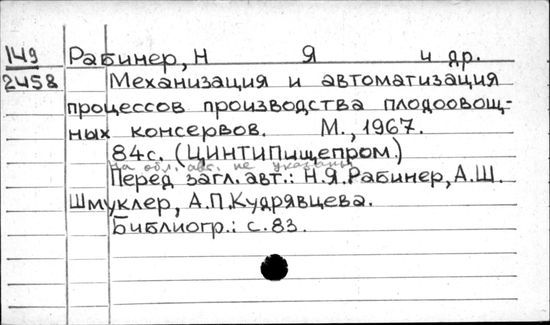 149 Рабинер, Н Я и др.
2458 Механизация и автоматизация
процессов производства плодоовощ-
ных консервов. М., 1967.
84с. (ЦИНТИПищепром.)
На обл. авт. не указаны
Перед загл. авт.: Н.Я.Рабинер, А.Ш.
Шмуклер, А.П.Кудрявцева.
Библиогр.: с.83.